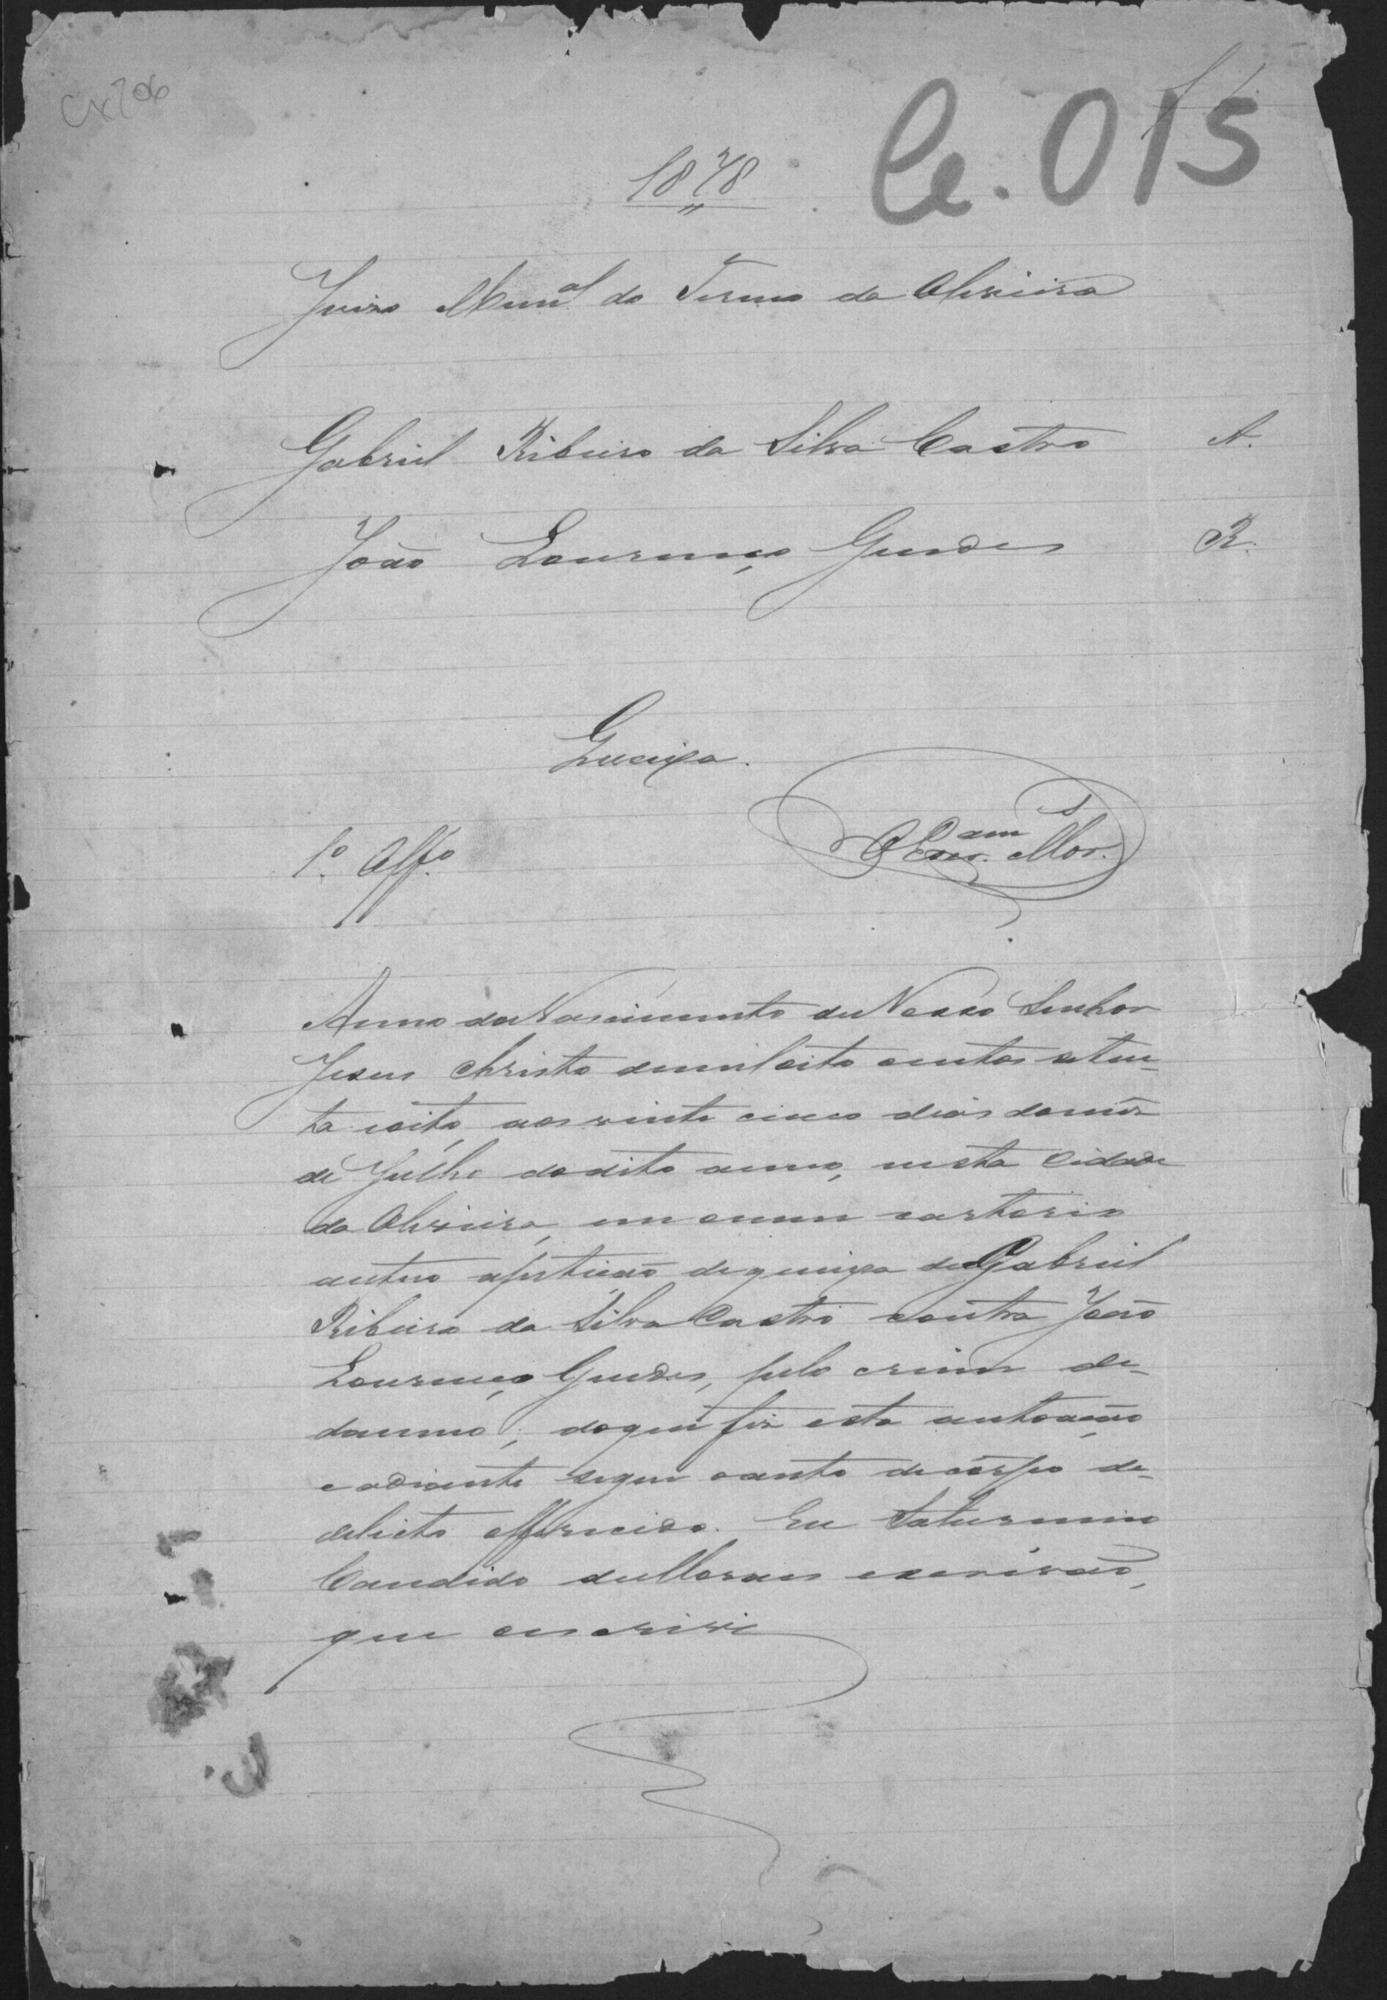 Cx 706
Ce. 015
1878
Juizo Mun.al do Termo da Oliveira
Gabriel Ribeiro da Silva Castro A.
João Lourenço Guedes R.
Queixa.
O Escr.am Mor.s
1º Aff.º
Anno do Nascimento de Nosso Senhor
Jesus Christo de mil oito centos seten-
ta e oito, aos vinte cinco dias do mez
de Julho do dito anno, nesta Cidade
da Oliveira, em o meu cartorio
autuo a petição de queixa de Gabriel
Ribeiro da Silva Castro contra João
Lourenço Guedes, pelo crime de-
damno; do que fiz esta autoação
e adiante segue o auto de corpo de-
delicto offerecido. Eu Saturnino
Candido de Moraes escrivão,
que escrivi